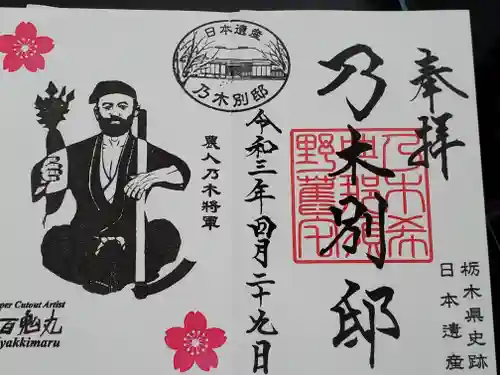 奉拝
乃木別邸
乃木希
典那須
野旧宅
栃木県史跡
日本遺産
日本遺産
乃木別邸
令和三年四月二十九日
農人乃木将軍
per Cutout Artist
百鬼丸
yakkimaru